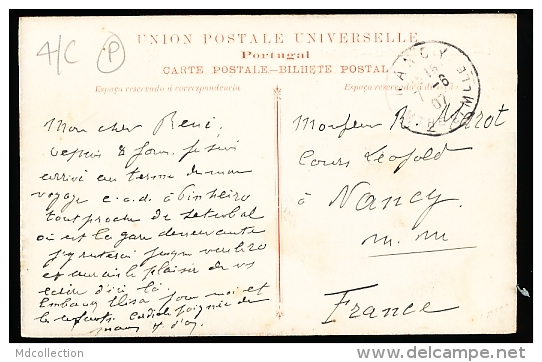 4/C P
UNION POSTALE UNIVERSELLE
Portugal
CARTE POSTALE—BILHETE POSTAL
Espaço reservado á correspondencia
Espaço reservado á
NANCY
16
-6
07
Mon cher René,
Depuis 8 jours je suis
arrivé au terme de mon
voyage c.a.d. à Pinheiro
tout proche de Setubal
où est la gare desservante
J'y resterai jusqu
et aurai le plaisir de vs
écrire d'ici là.
Embrassez Elisa pour moi et
les enfants. Cordiale poignée de
main
Monsieur R. Marot
Cours Léopold
à Nancy
M. M
France
Mdcollection
http://www.delcampe.net